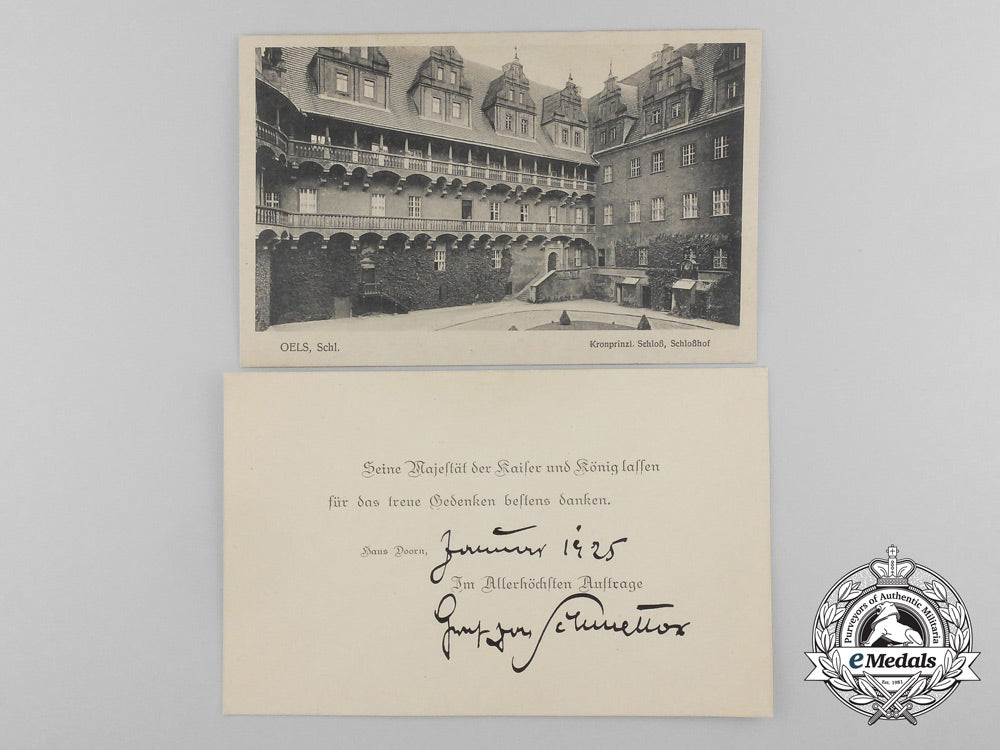 OELS, Schl.
Kronprinzl. Schloß, Schloßhof
Seine Majestät der Kaiser und König lassen
für das treue Gedenken bestens danken.
Haus Doorn, Januar 1925
Im Allerhöchsten Auftrage
Graf von Schmettow
Purveyors of Authentic Militaria
eMedals
Est. 1981